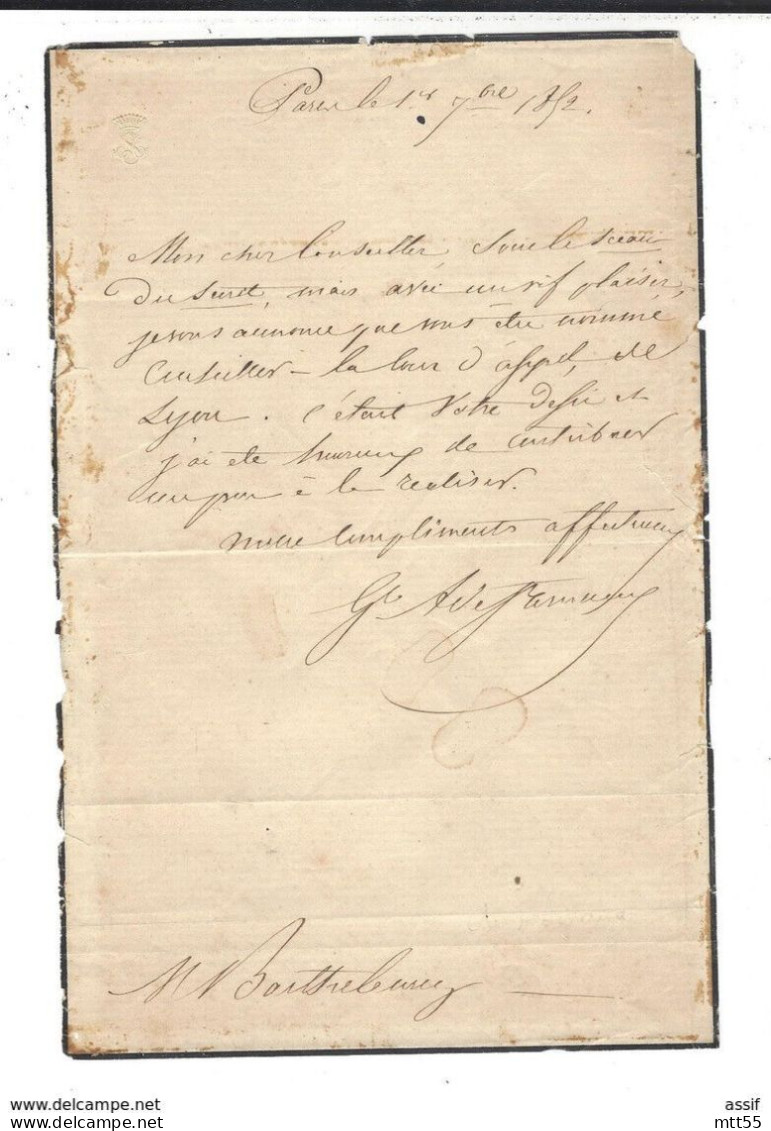 Paris le 1er 7bre 1852.
Mon cher Conseiller, Sous le sceau
du secret, mais avec un vif plaisir,
je vous annonce que vous êtes nommé
Conseiller - la Cour d'appel, de
Lyon. C'était votre desir et
j'ai été heureux de contribuer
un peu à le realiser.
mille compliments affectueux
Gl A de
M Barthelemy
assif
delcampe.net
mtt55